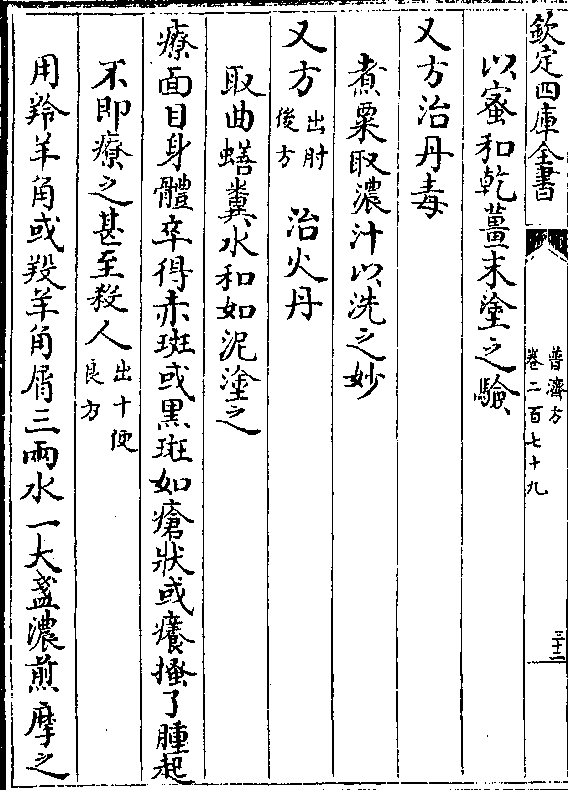 欽定四庫全書
普濟方
卷二百七十九
三十二
以蜜和乾薑末塗之驗
又方治丹毒
煮粟取濃汁以洗之妙
又方出肘後方 治火丹
取曲蟮糞水和如泥塗之
療面目身體卒得赤斑或黑斑如瘡狀或癢搔了腫起
不即療之甚至殺人出十便良方
用羚羊角或羖羊角屑三兩水一大盞濃煎摩之